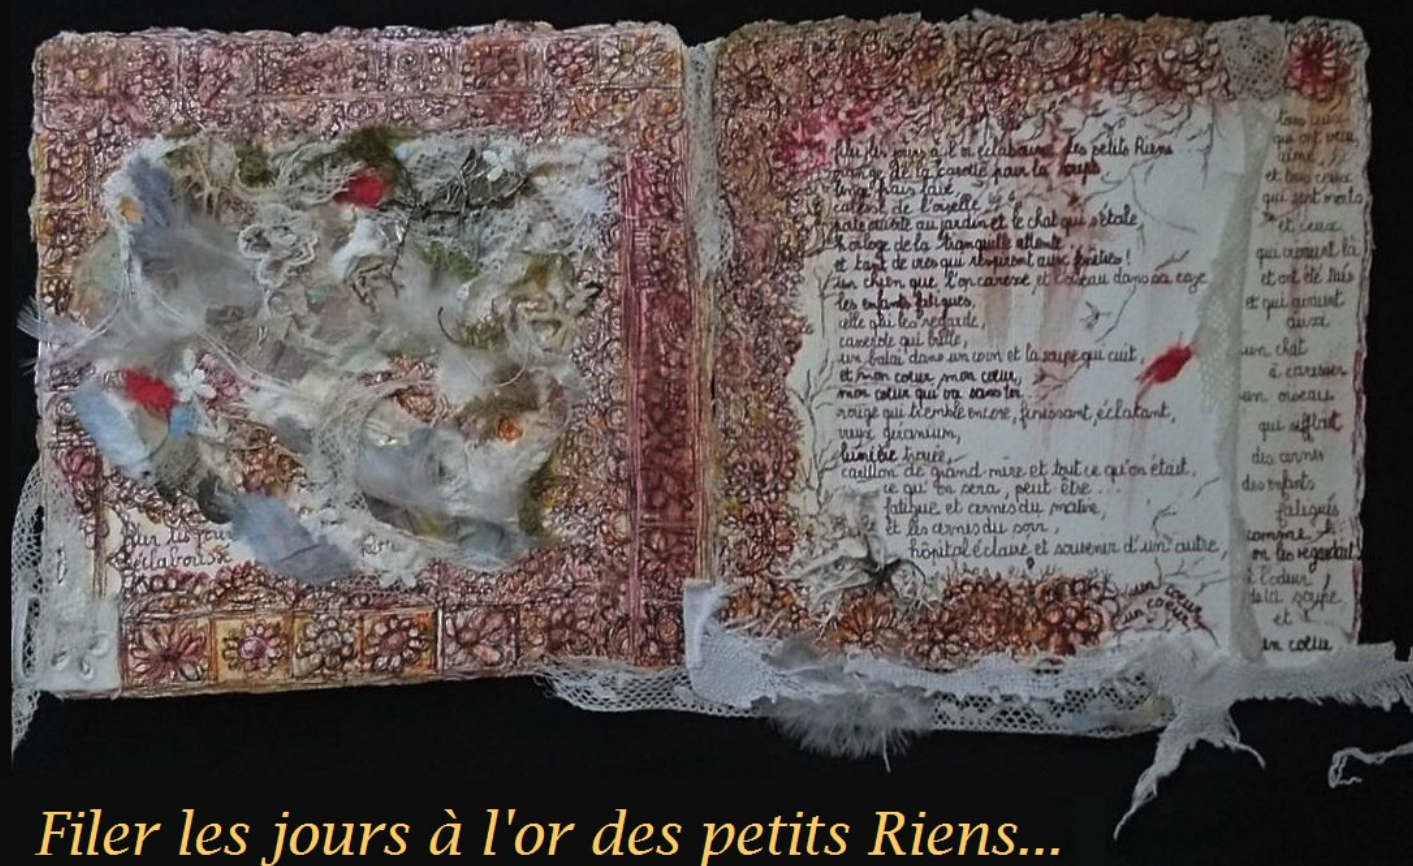 les jour
filer les jours à l'or éclaboussé des petits Riens
orange de la carotte pour la soupe,
linge frais lavé
de l'oiselle
porte ouverte au jardin et le chat qui s'étale,
horloge de la tranquille attente
et tant de vies qui respirent aux fenêtres !
un chien que l'on caresse et l'oiseau dans sa cage
les enfants fatigués,
celle qui les regarde,
casserole qui brille,
un balai dans un coin et la soupe qui cuit,
et mon cœur, mon cœur,
mon cœur qui va sans toi
rouge qui tremble encore, finissant, éclatant,
vieux géranium,
lumière trouée,
carillon de grand-mère et tout ce qu'on était,
ce qu'on sera, peut être ...
fatigue et armes du matin,
et les armes du soir,
hôpital éclairé et souvenir d'un autre,
un cœur
un cœur
tous ceux
qui ont vécu
aimé
et tous ceux
qui sont morts
et ceux
qui étaient là
et ont été tués
et qui avaient
aussi
un chat
à caresser
un oiseau
qui sifflait
des armes
des enfants
fatigués
comme
on les regardait
à l'odeur
de la soupe
et
un cœur
Filer les jours à l'or des petits Riens...